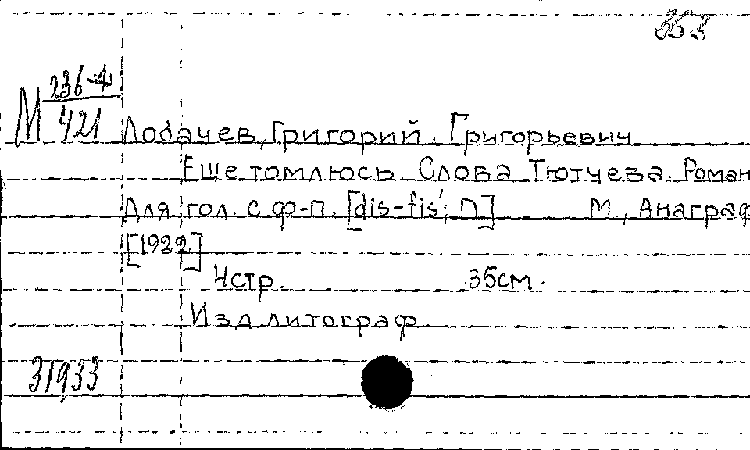 353
М 236-4
421
Лобачев, Григорий Григорьевич
Еще томлюсь. Слова Тютчева. Роман
Для гол. с ф-п. [dis-fis'; П] М., Анаграф
[1922]
4стр. 35см.
Изд литограф.
31933